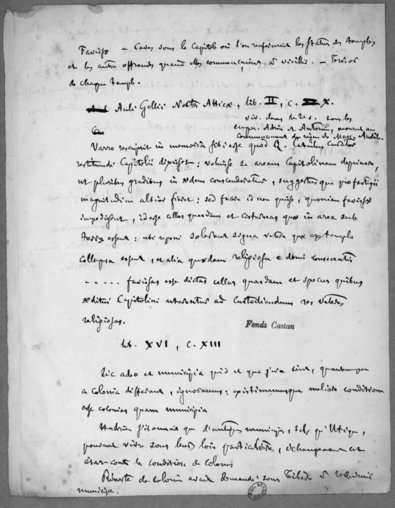 Favissæ — Caves sous le Capitole où l'on renfermait les statues des temples
et les autres offrandes quand elles commençaient à vieillir. — Trésor
de chaque temple.
Auli Gellii Noctes Atticæ, lib. II, c. X.
viv. dans le 2e s. sous les
emper. Adrien et Antonin, mourut au
commencement du règne de Marc Aurèle
Varro rescripsit in memoria sibi esse quod Q. Catulus curator
restituendi Capitolii dixisset: voluisse se aream Capitolinam deprimere
ut pluribus gradibus in ædem conscenderetur, suggestusque pro fastigii
magnitudine altior fieret: sed facere id non quisse, quoniam favissæ
impedissent, id esse cellas quasdam et cisternas quæ in area sub
terra essent: ubi reponi solerent signa vetera quæ ex templo
collapsa essent, et alia quædam religiosa e donis consecratis
..... favissas esse dictas cellas quasdam et specus quibus
æditui Capitolini uterentur ad custodiendum res veteres
religiosas.
Fonds Castan
lib. XVI, c. XIII
Sic adeo et municipia quid et quo jure sint, quantumque
a colonia differant, ignoramus: existimamusque meliore conditione
esse colonias quam municipia
Hadrien s'étonnait que d'antiques municipes, tels qu'Utique,
pouvant vivre sous leurs lois particulières, échangeassent cet
état contre la condition de colonies
de colonie avait demandé sous Tibère à
municipe.